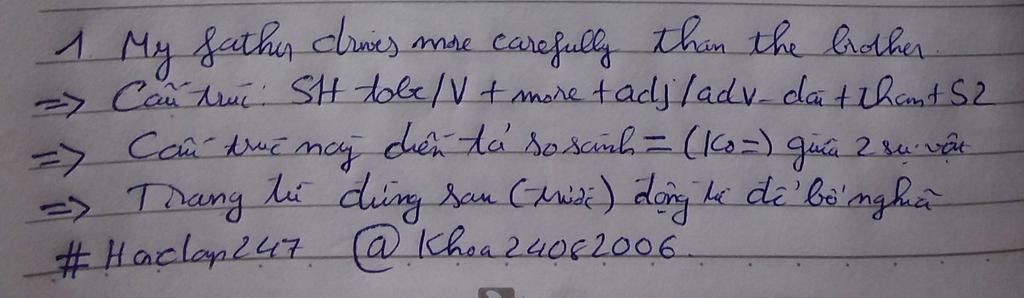 1. My father drives more carefully than the brother.
=> Cấu trúc: S1+ tobe/V + more + adj/adv-dài + than + S2
=> Cấu trúc này diễn tả so sánh = (ko =) giữa 2 sự vật
=> Trạng từ đứng sau (trước) động từ để bổ nghĩa
#Hoclop247 @Khoa24082006